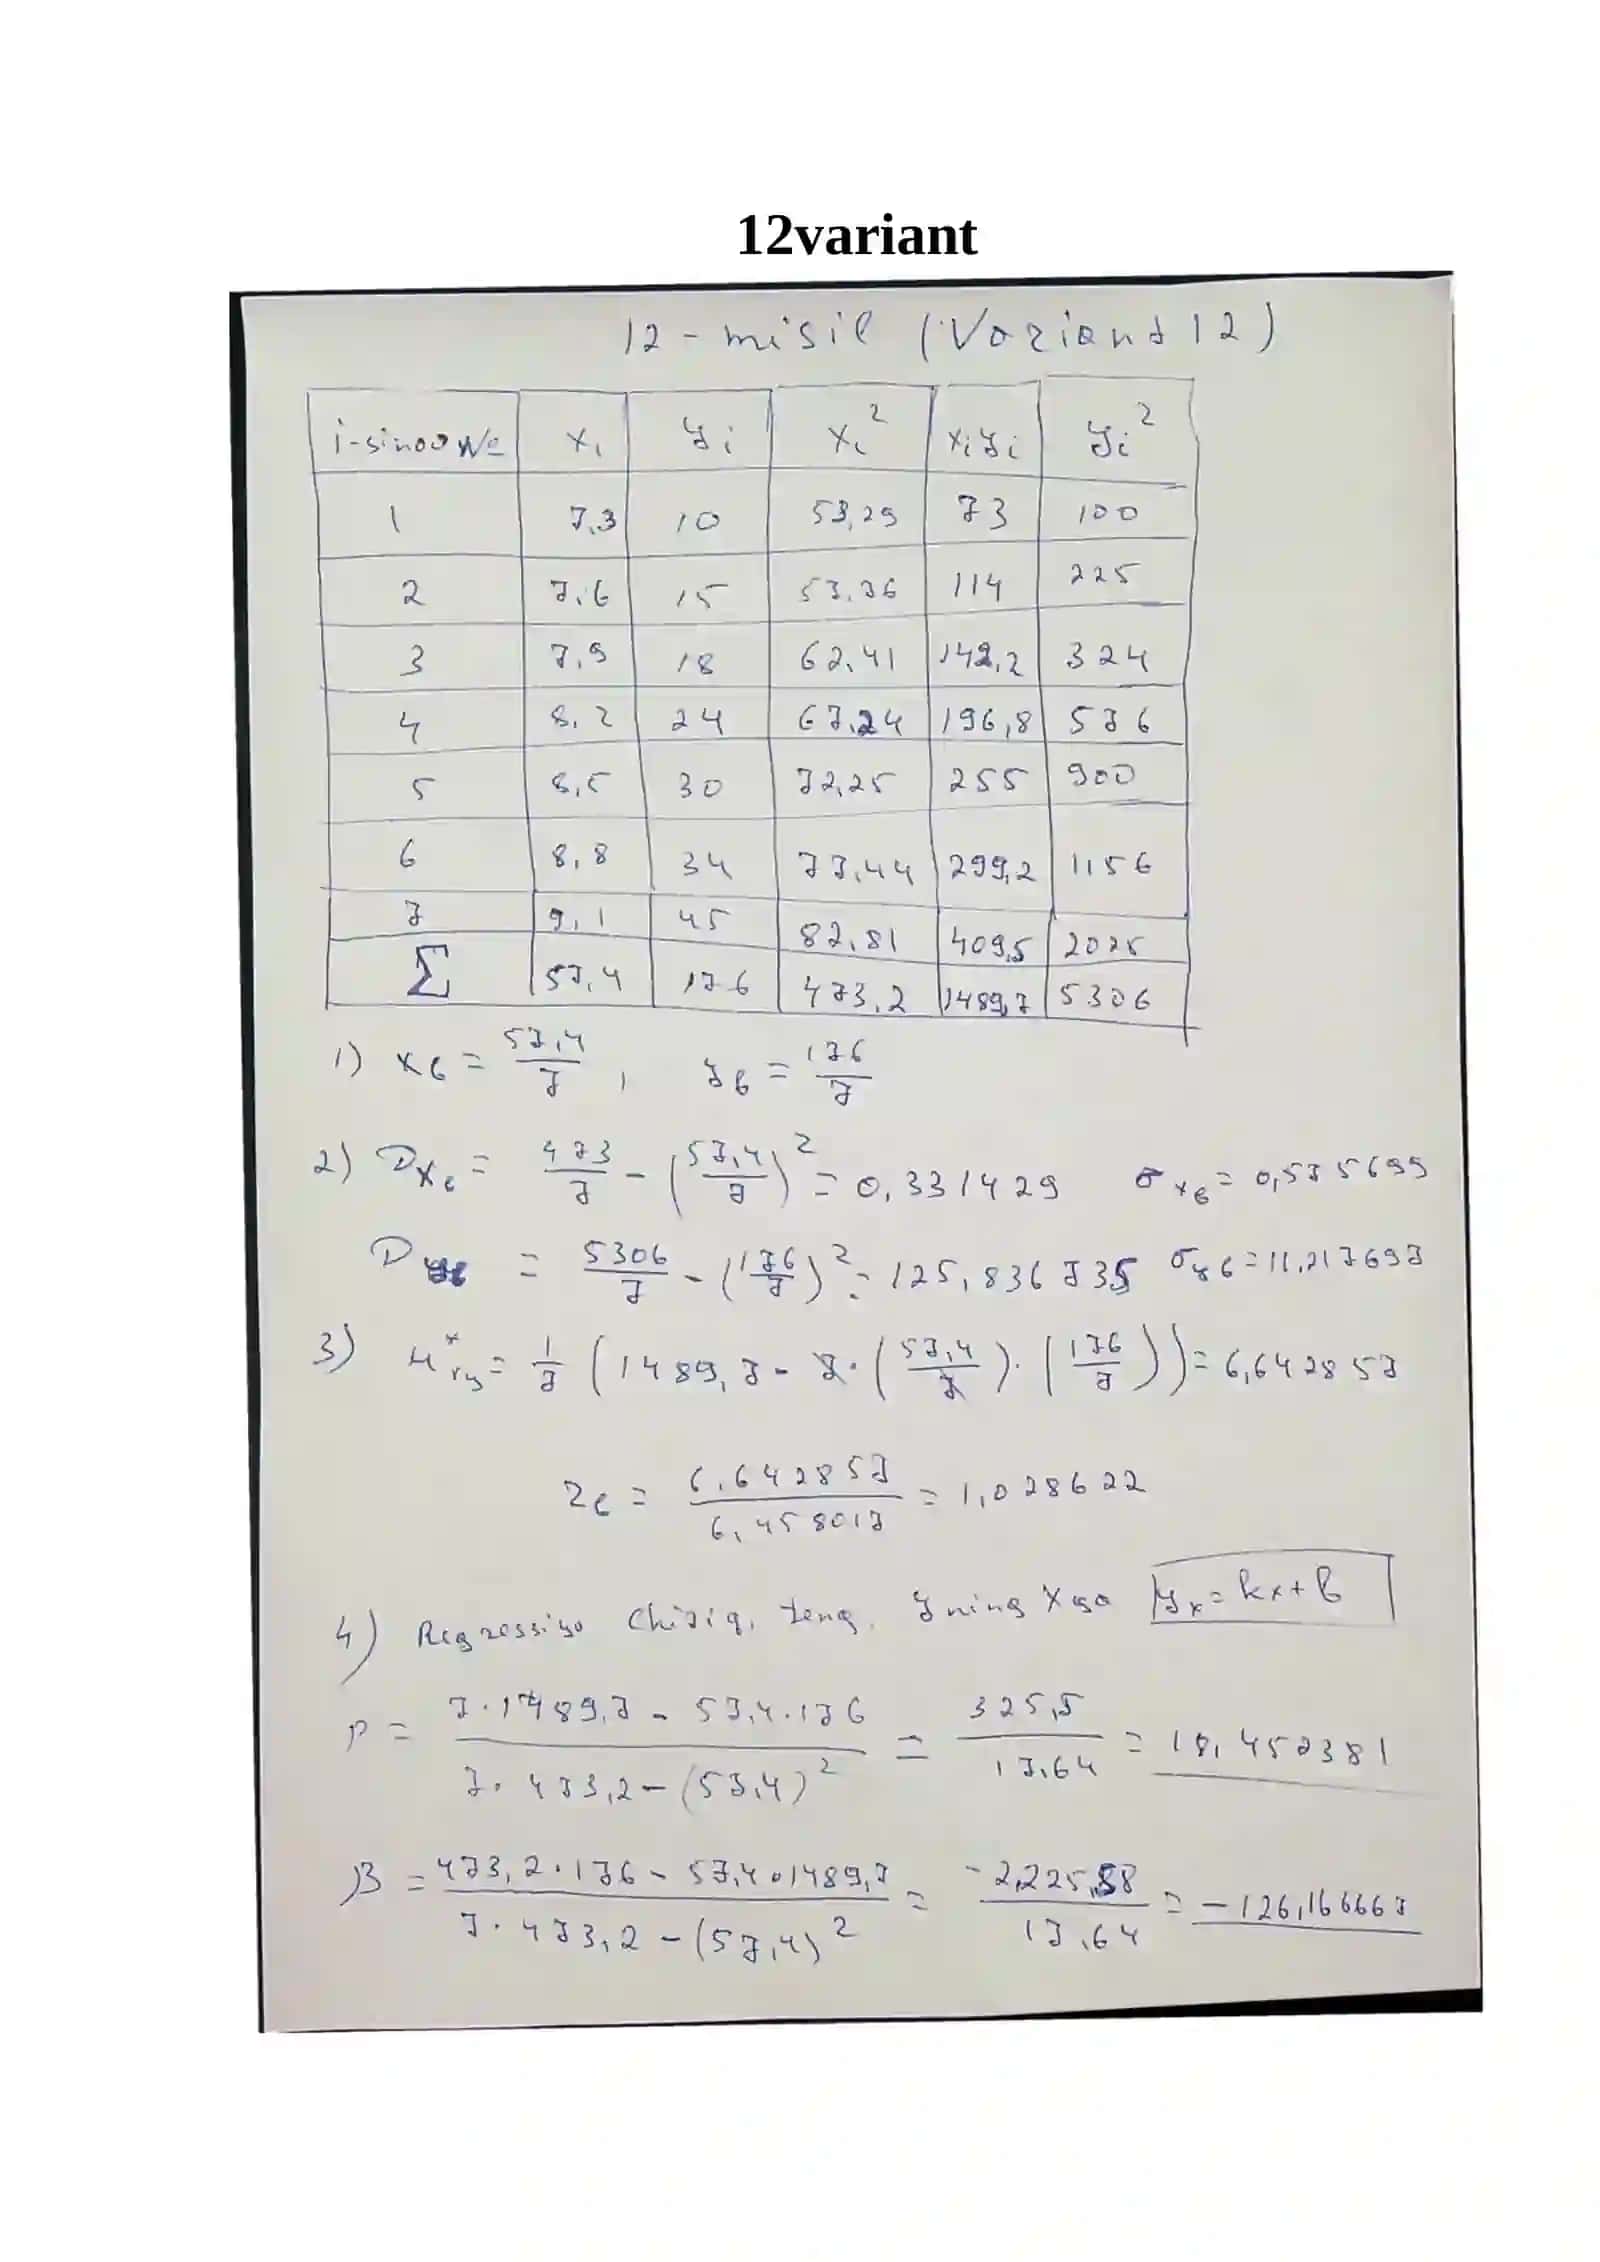 12variant
12-misil (Variant 12)
i-sinov № xᵢ yᵢ xᵢ² xᵢyᵢ yᵢ²
1 7,3 10 53,29 73 100
2 7,6 15 53,36 114 225
3 7,9 18 62,41 142,2 324
4 8,2 24 67,24 196,8 576
5 8,5 30 72,25 255 900
6 8,8 34 77,44 299,2 1156
7 9,1 45 82,81 409,5 2025
Σ 57,4 176 473,2 1489,7 5306
1) x_в = 57,4/7 , y_в = 176/7
2) D_xв = 473/7 - (57,4/7)² = 0,331429 σ_xв = 0,575699
D_yв = 5306/7 - (176/7)² = 125,836735 σ_yв = 11,217697
3) μ*_xy = 1/7 (1489,7 - 7·(57,4/7)·(176/7)) = 6,642857
r_в = 6,642857/6,458017 = 1,028622
4) Regressiya Chiziq. teng. y ning x ga y_x = kx + b
ρ = (7·1489,7 - 57,4·176)/(7·473,2 - (57,4)²) = 325,5/17,64 = 18,452381
B = (473,2·176 - 57,4·1489,7)/(7·473,2 - (57,4)²) = -2,225,58/17,64 = -126,166667